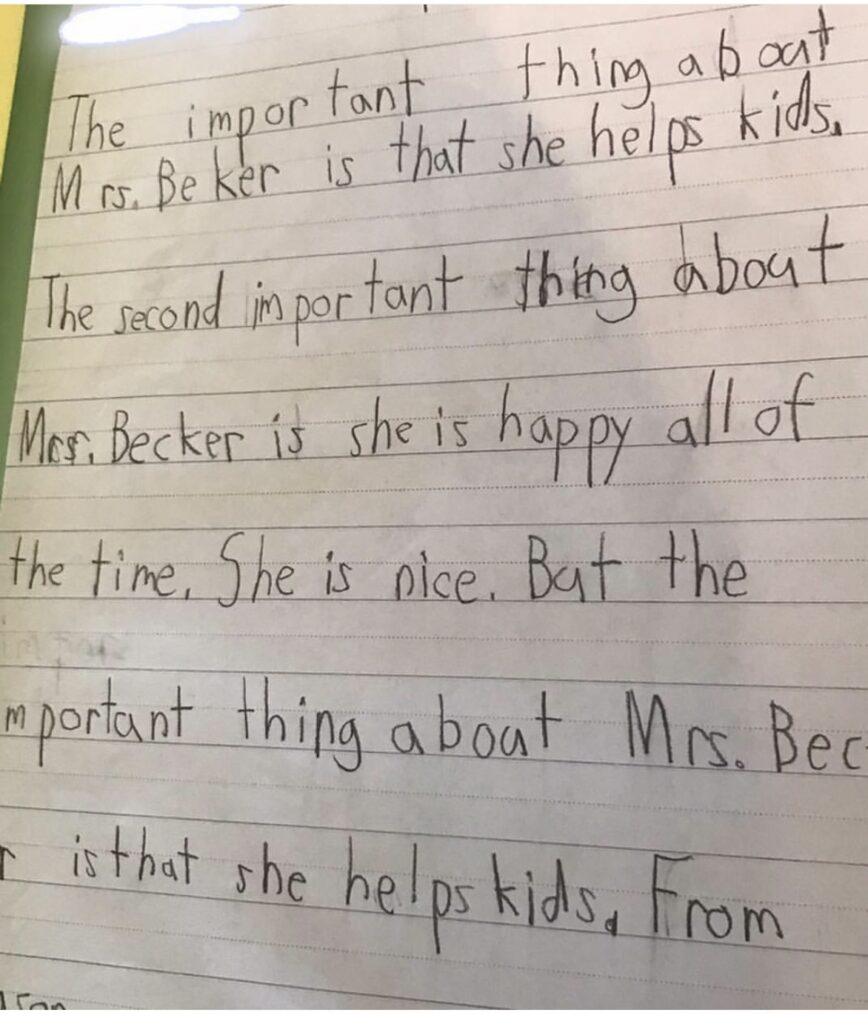 The important thing about
Mrs. Beker is that she helps kids.
The second important thing about
Mrs. Becker is she is happy all of
the time. She is nice. But the
mportant thing about Mrs. Bec
r is that she helps kids. From